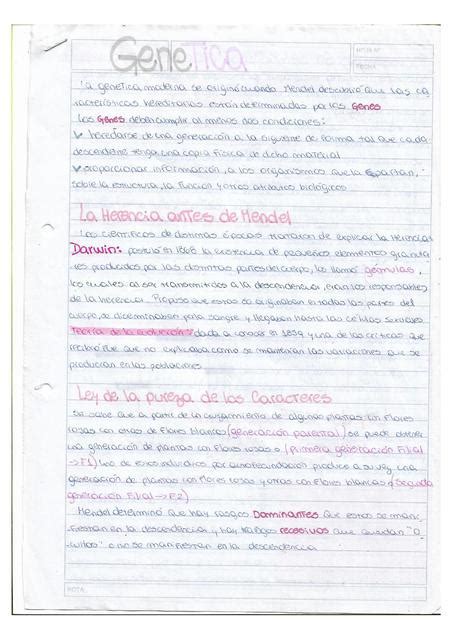 Genetica
HOJA Nº
FECHA
La genetica moderna se originó cuando Mendel descubrió que las ca
racterísticas hereditarias están determinadas por los Genes
Los Genes deben cumplir al menos dos condiciones:
heredarse de una generación a la siguiente de forma tal que cada
descendiente tenga una copia física de dicho material
proporcionar información, a los organismos que la portan,
sobre la estructura, la función y otros atributos biológicos
La Herencia antes de Mendel
Los científicos de distintas épocas trataron de explicar la herencia
Darwin: postuló en 1868 la existencia de pequeños elementos granula
res producidos por las distintas partes del cuerpo, la llamó gémulas,
los cuales al ser transmitidos a la descendencia, eran los responsables
de la herencia. Propuso que estas se originaban en todas las partes del
cuerpo, se diceminaban por la sangre y llegaban hasta las células sexuales
Teoría de la evolución: dada a conocer en 1859 y una de las críticas que
recibió fue que no explicaba como se mantenían las variaciones que se
producían en las poblaciones
Ley de la pureza de los Caracteres
Se sabe que a partir de la cruzamiento de algunas plantas con flores
rosas con otras de flores blancas (generación parental) se puede obtener
una generación de plantas con flores rosas o (primera generación Filial
->F1) uno de esos individuos por autofecundación produce a su vez una
generación de plantas con flores rosas y otras con flores blancas o (segunda
generación Filial -> F2)
Mendel determinó que hay rasgos Dominantes que estos se mani
fiestan en la descendencia y hay rasgos recesivos que quedan "o
cultos" o no se manifiestan en la descendencia
NOTA